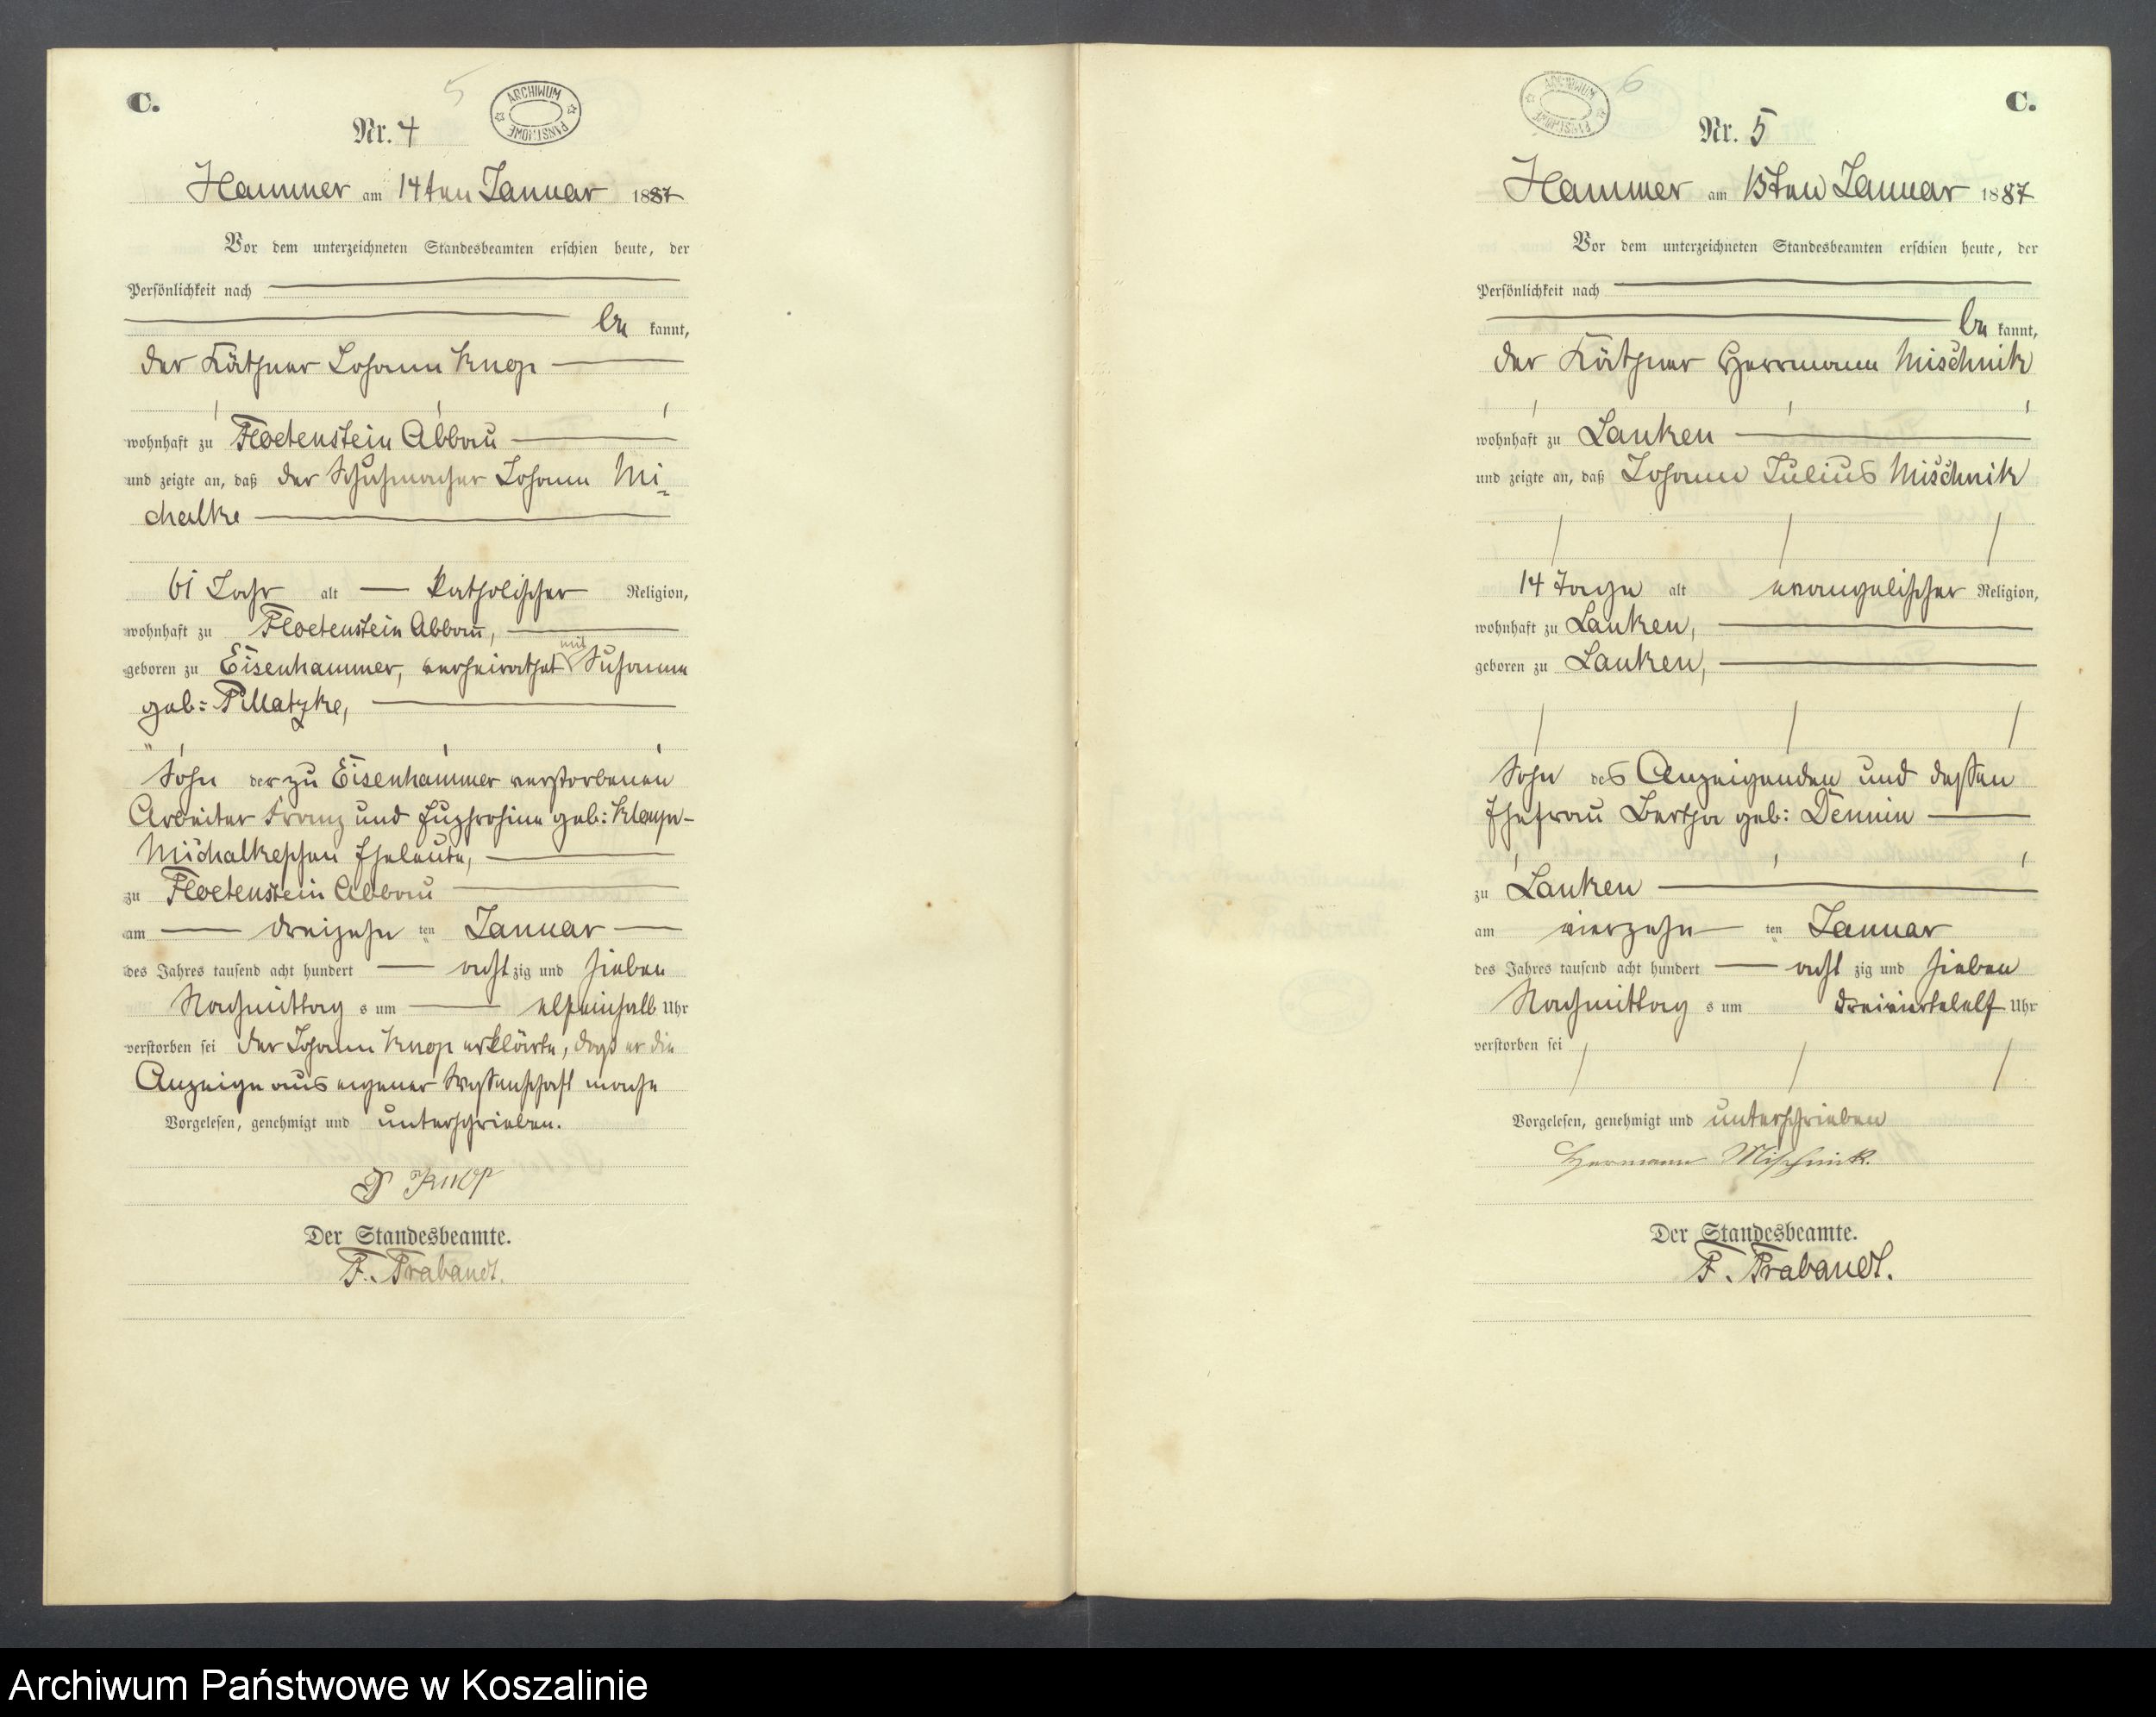 C.
5
ARCHIWUM PAŃSTWOWE
Nr. 4
Hammer am 14ten Januar 1887
Vor dem unterzeichneten Standesbeamten erschien heute, der
Persönlichkeit nach
be kannt,
der Käthner Johann Knop
wohnhaft zu Floetenstein Abbau
und zeigte an, daß der Schuhmacher Johann Mi-
chalke
61 Jahr alt katholischer Religion,
wohnhaft zu Floetenstein Abbau,
geboren zu Eisenhammer, verheirathet mit Susanne
geb: Pillatzke,
Sohn der zu Eisenhammer verstorbenen
Arbeiter Franz und Euphrosine geb:
Michalkeschen Eheleute,
zu Floetenstein Abbau
am dreizehn ten Januar
des Jahres tausend acht hundert acht zig und sieben
Nachmittag s um elfeinhalb Uhr
verstorben sei der Johann Knop erklärte, daß er die
Anzeige aus eigener Wissenschaft mache
Vorgelesen, genehmigt und unterschrieben.
J Knop
Der Standesbeamte.
F. Prabandt.
C.
6
ARCHIWUM PAŃSTWOWE
Nr. 5
Hammer am 15ten Januar 1887
Vor dem unterzeichneten Standesbeamten erschien heute, der
Persönlichkeit nach
be kannt,
der Käthner Herrmann Mischnik
wohnhaft zu Lanken
und zeigte an, daß Johann Julius Mischnik
14 Tage alt evangelischer Religion,
wohnhaft zu Lanken,
geboren zu Lanken,
Sohn des Anzeigenden und dessen
Ehefrau Bertha geb: Demin
zu Lanken
am vierzehn ten Januar
des Jahres tausend acht hundert acht zig und sieben
Nachmittag s um dreiviertelelf Uhr
verstorben sei
Vorgelesen, genehmigt und unterschrieben
Hermann Mischnick.
Der Standesbeamte.
F. Prabandt.
Archiwum Państwowe w Koszalinie